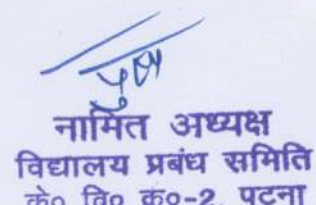 नामित अध्यक्ष
विद्यालय प्रबंध समिति
के० वि० क्र०-2, पटना